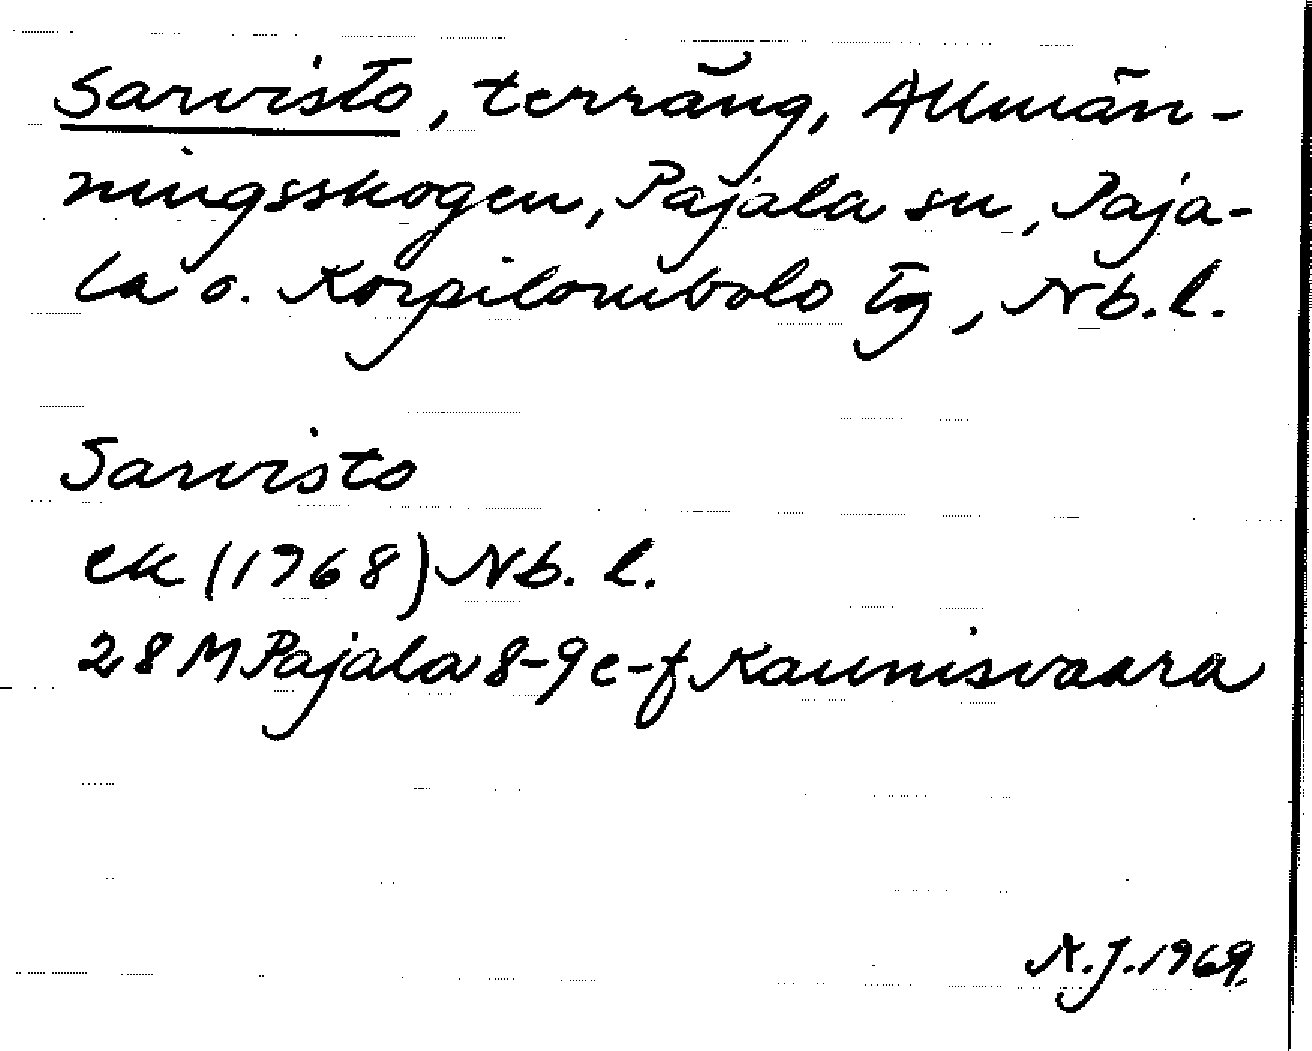 Sarvisto, terräng, Allmän-
ningsskogen, Pajala sn, Paja-
la o. Korpilombolo tg, Nb.l.
Sarvisto
ek (1968) Nb. l.
28 M Pajala 8-9 e-f Kaunisvaara
N.J. 1969.